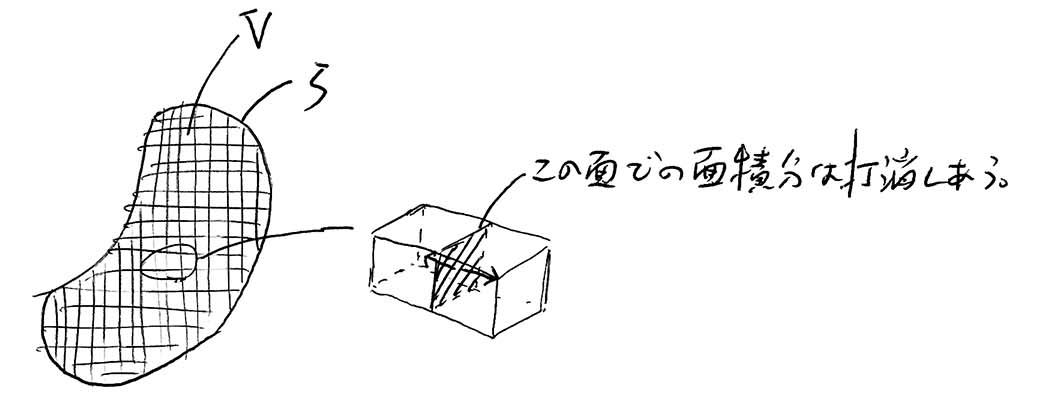 V
S
この面での面積分は打消しあう。